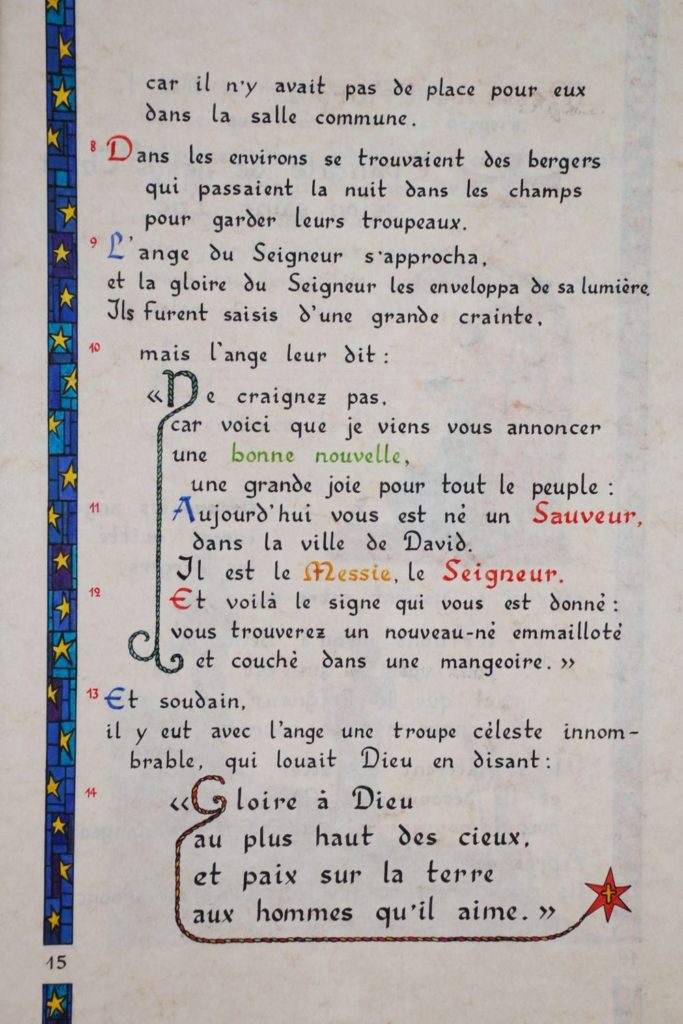 car il n'y avait pas de place pour eux
dans la salle commune.
8 Dans les environs se trouvaient des bergers
qui passaient la nuit dans les champs
pour garder leurs troupeaux.
9 L'ange du Seigneur s'approcha,
et la gloire du Seigneur les enveloppa de sa lumière.
Ils furent saisis d'une grande crainte,
10 mais l'ange leur dit :
«Ne craignez pas,
car voici que je viens vous annoncer
une bonne nouvelle,
une grande joie pour tout le peuple :
11 Aujourd'hui vous est né un Sauveur,
dans la ville de David.
Il est le Messie, le Seigneur.
12 Et voilà le signe qui vous est donné :
vous trouverez un nouveau-né emmailloté
et couché dans une mangeoire.»
13 Et soudain,
il y eut avec l'ange une troupe céleste innom-
brable, qui louait Dieu en disant :
14 «Gloire à Dieu
au plus haut des cieux,
et paix sur la terre
aux hommes qu'il aime.»
15